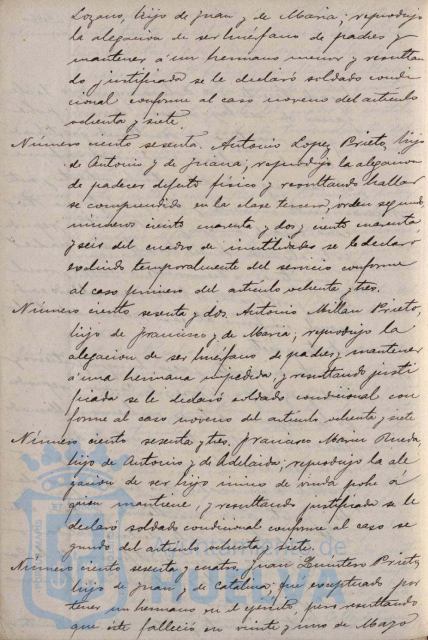 Lozano, hijo de Juan y de Maria; reprodujo
la alegacion de ser huerfano de padres y
mantener á un hermano menor y resultan
do justificada se le declaró soldado condi
cional conforme al caso noveno del articulo
ochenta y siete.
Número ciento sesenta. Antonio Lopez Prieto, hijo
de Antonio y de Juana; reprodujo la alegacion
de padecer defecto fisico y resultando hallar
se comprendido en la clase tercera, orden segundo,
números ciento cuarenta y dos y ciento cuarenta
y seis del cuadro de inutilidades se le declaró
excluido temporalmente del servicio conforme
al caso primero del articulo ochenta y tres.
Número ciento sesenta y dos. Antonio Millan Prieto,
hijo de Francisco y de Maria; reprodujo la
alegacion de ser huerfano de padres y mantener
á una hermana impedida, y resultando justi
ficada se le declaró soldado condicional con
forme al caso noveno del articulo ochenta y siete
Número ciento sesenta y tres. Francisco Rueda,
hijo de Antonio y de Adelaida; reprodujo la ale
gacion de ser hijo único de viuda pobre á
quien mantiene; y resultando justificada se le
declaró soldado condicional conforme al caso se
gundo del articulo ochenta y siete.
Número ciento sesenta y cuatro. Juan Prieto,
hijo de Juan y de Catalina; fué exceptuado por
tener un hermano en el ejército, pero resultando
que éste falleció en veinte y uno de Mayo